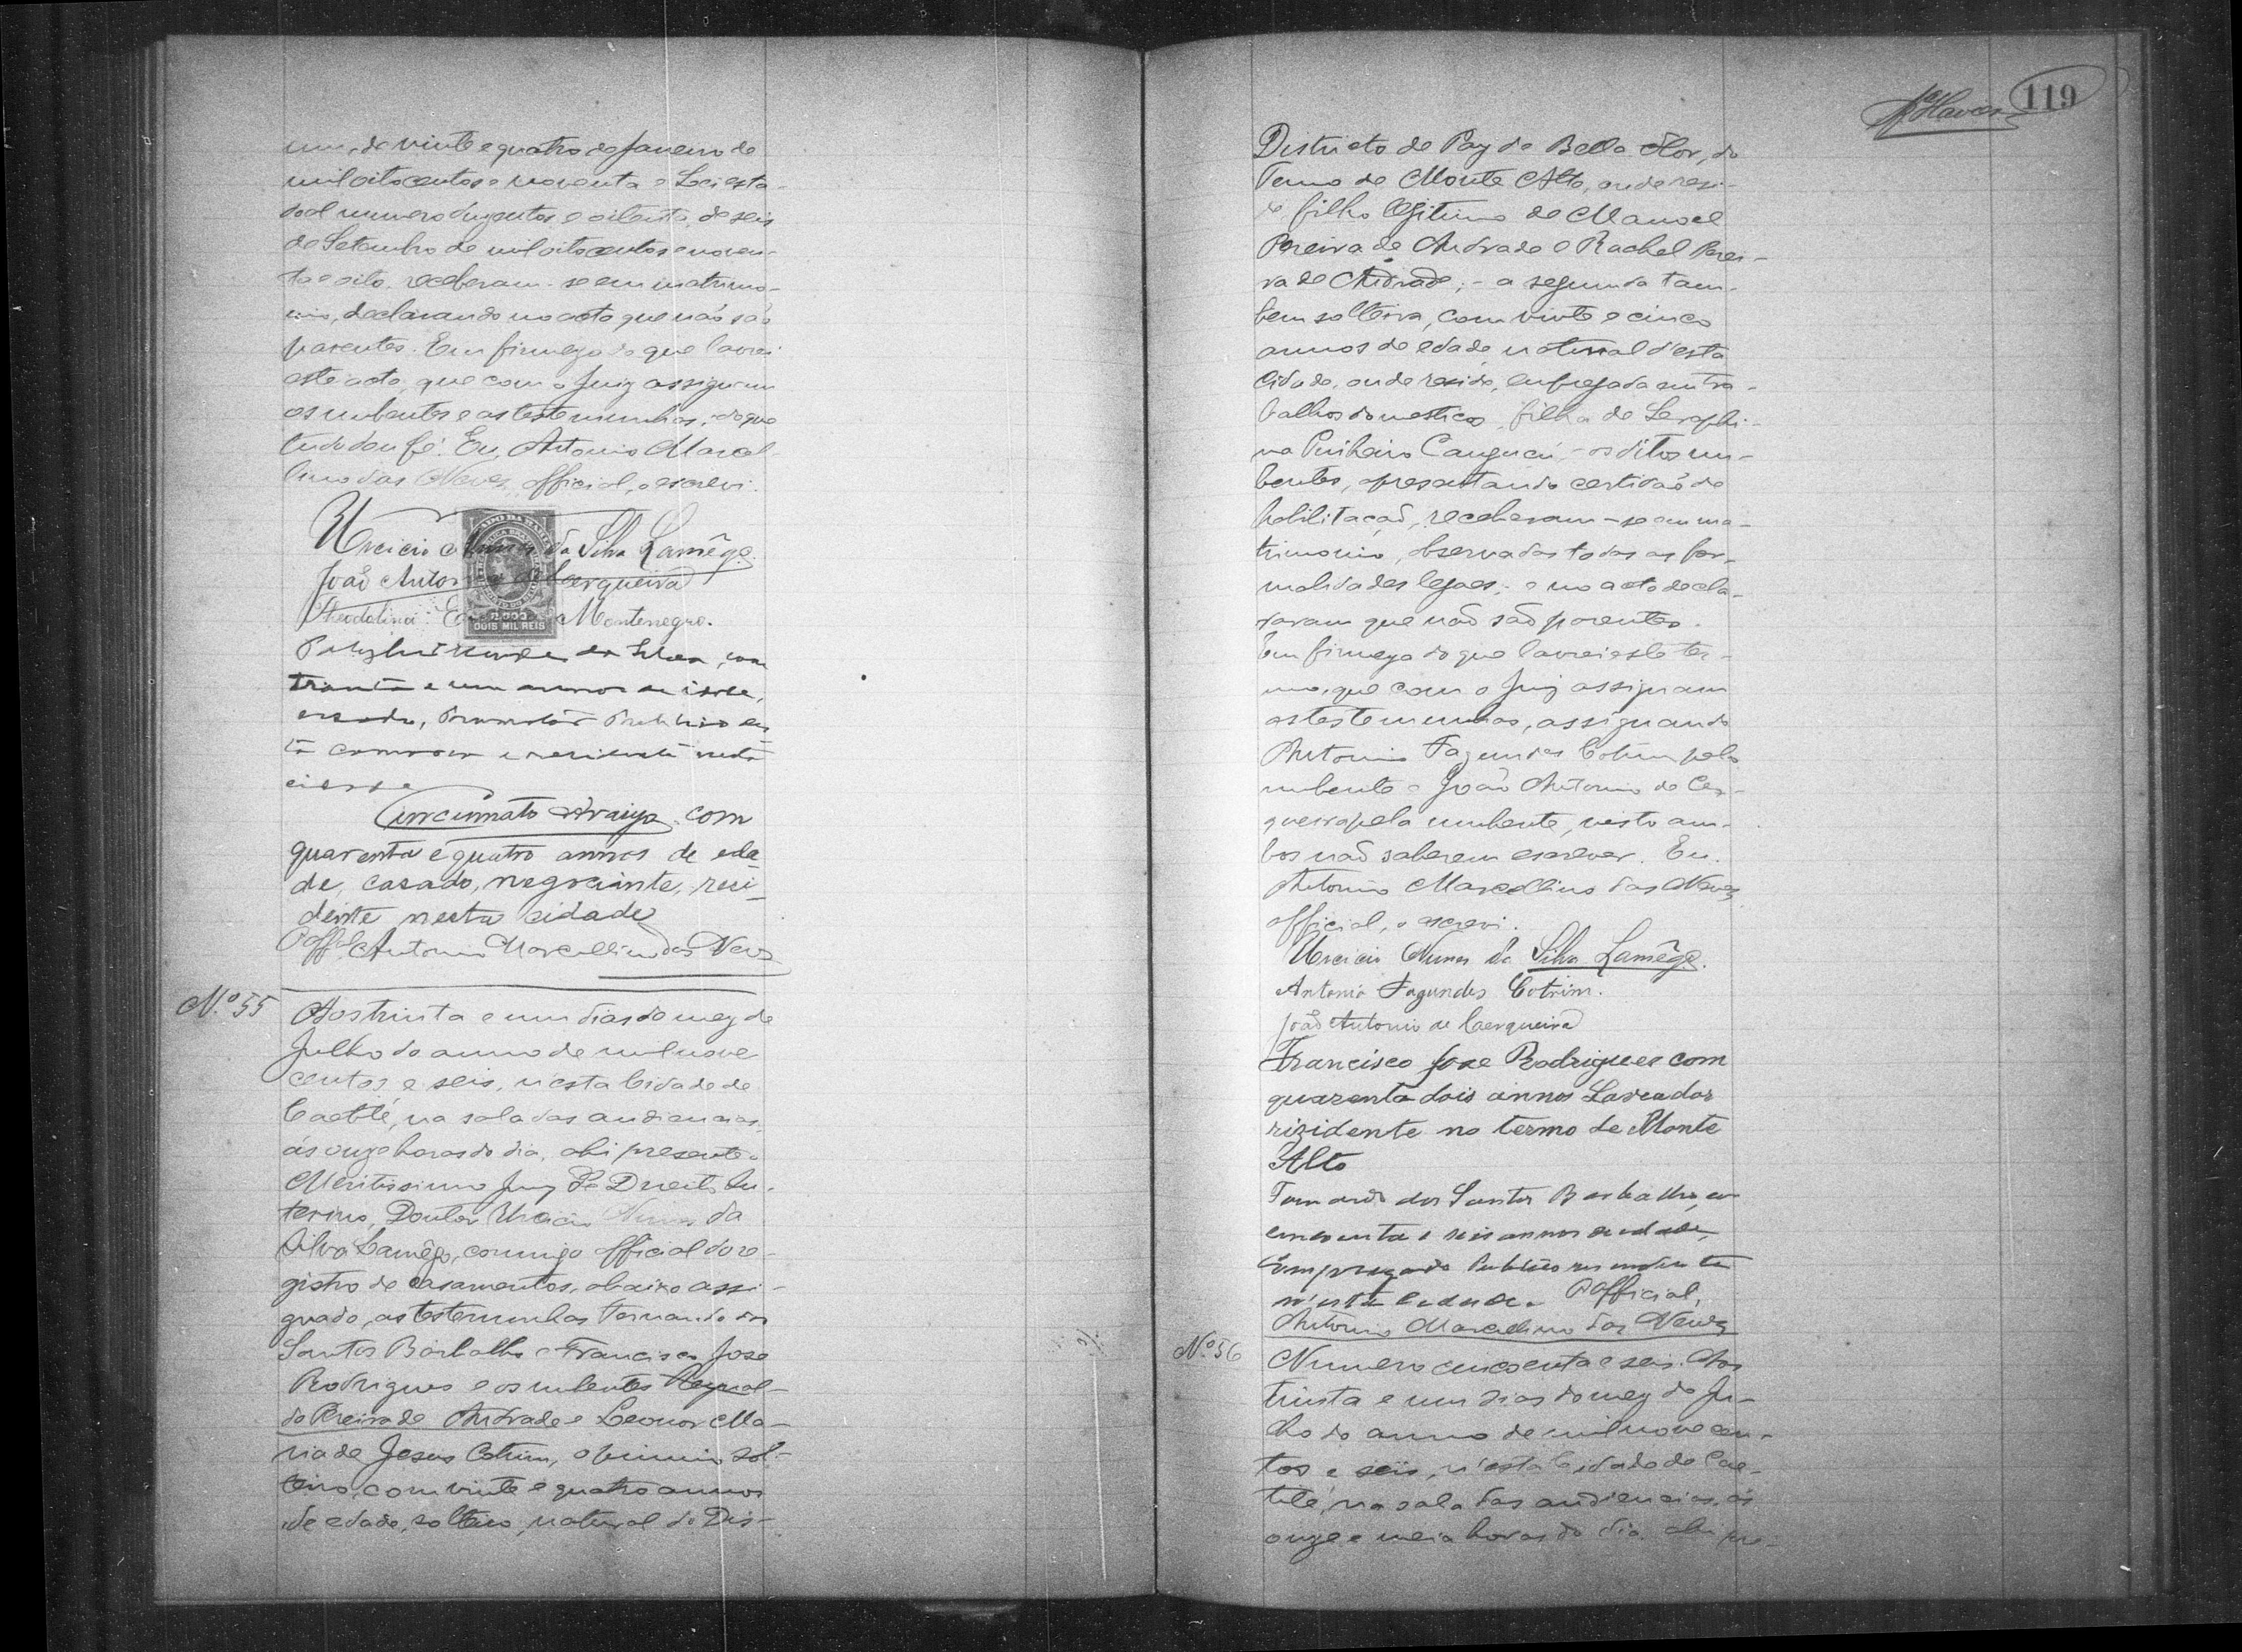 um, de vinte e quatro de Janeiro de
mil oito centos e noventa e Lei esta-
doal numero duzentos e oitenta, de seis
de Setembro de mil oito centos e noven-
ta e oito, receberam-se em matrimo-
nio, declarando no acto que não são
parentes. Em firmeza do que lavrei
este acto, que com o Juiz assignam
os nubentes e as testemunhas; do que
tudo dou fé. Eu, Antonio Marcel-
lino das Neves, official, o escrevi.
Urcicio Nunes da Silva Lamêgo.
João Antonio de Cerqueira
Montenegro.
DOIS MIL REIS
da Silva, com
trinta e um annos de idade,
casado, Promotor Publico des
ta comarca e residente nesta
cidade
Cincinnato Araujo, com
quarenta e quatro annos de eda-
de, casado, negociante, resi-
dente nesta cidade
O offal Antonio Marcellino das Neves
N.º 55
Aos trinta e um dias do mez de
Julho do anno de mil nove
centos e seis, n'esta Cidade de
Caetité, na sala das audiencias,
ás onze horas do dia, ahi presente o
Meritissimo Juiz de Direito In-
terino, Doutor Urcicio Nunes da
Silva Lamêgo, commigo official do re-
gistro de casamentos, abaixo assi-
gnado, as testemunhas Fernando dos
Santos Barbalho e Francisco José
Rodrigues e os nubentes Reynal-
do Pereira de Andrade e Leonor Ma-
ria de Jesus Cotrim, o primeiro sol-
teiro, com vinte e quatro annos
de edade, solteiro, natural do Dis-
119
Districto de Pay da Bella Flor, do
Termo de Monte Alto, onde resi-
de filho legitimo de Manoel
Pereira de Andrade e Rachel Perei-
ra de Andrade; - a segunda tam-
bem solteira, com vinte e cinco
annos de edade, natural d'esta
Cidade, onde reside, empregada em tra-
balhos domesticos, filha de Seraphi-
na Pinheiro Canguçú, - os ditos nu-
bentes, apresentando certidão de
habilitação, receberam-se em ma-
trimonio, observadas todas as for-
malidades legaes; e no acto decla-
raram que não são parentes.
Em firmeza do que lavrei este ter-
mo, que com o Juiz assignam
as testemunhas, assignando
Antonio Fagundes Cotrim pelo
nubente e João Antonio de Cer-
queira pela nubente, visto am-
bos não saberem escrever. Eu,
Antonio Marcellino das Neves,
official, o escrevi.
Urcicio Nunes da Silva Lamêgo.
Antonio Fagundes Cotrim.
João Antonio de Cerqueira
Francisco Jose Rodrigues com
quarenta dois annos Lavrador
rizidente no termo de Monte
Alto
Fernando dos Santos Barbalho, com
cincoenta e seis annos de edade,
Empregado Publico residente
n'esta cidade. O official,
Antonio Marcellino das Neves
Nº 56
Numero cincoenta e seis. Aos
trinta e um dias do mez de Ju-
lho do anno de mil nove cen-
tos e seis, n'esta Cidade de Cae-
tité, na sala das audiencias, ás
onze e meia horas do dia, ahi pre-